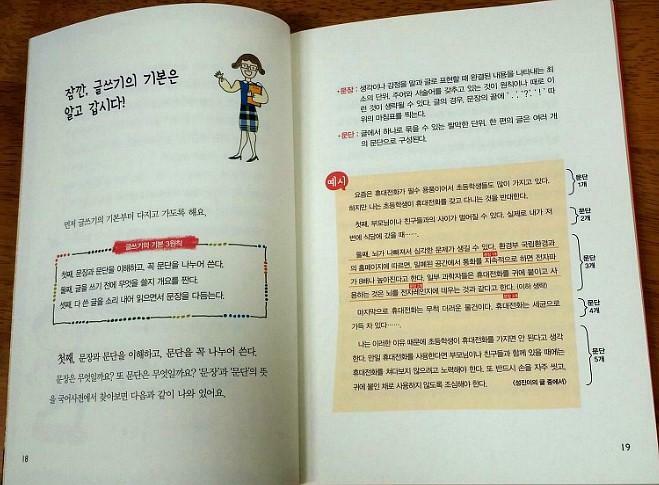 잠깐, 글쓰기의 기본은
알고 갑시다!
먼저 글쓰기의 기본부터 다지고 가도록 해요.
글쓰기의 기본 3원칙
첫째, 문장과 문단을 이해하고, 꼭 문단을 나누어 쓴다.
둘째, 글을 쓰기 전에 무엇을 쓸지 개요를 짠다.
셋째, 다 쓴 글을 소리 내어 읽으면서 문장을 다듬는다.
첫째, 문장과 문단을 이해하고, 문단을 꼭 나누어 쓴다.
문장은 무엇일까요? 또 문단은 무엇일까요? '문장'과 '문단'의 뜻
을 국어사전에서 찾아보면 다음과 같이 나와 있어요.
18
•문장 : 생각이나 감정을 말과 글로 표현할 때 완결된 내용을 나타내는 최
소의 단위. 주어와 서술어를 갖추고 있는 것이 원칙이나 때로 이
런 것이 생략될 수 있다. 글의 경우, 문장의 끝에 '. ', '?', '! ' 따
위의 마침표를 찍는다.
•문단 : 글에서 하나로 묶을 수 있는 짤막한 단위. 한 편의 글은 여러 개
의 문단으로 구성된다.
예시
요즘은 휴대전화가 필수 용품이어서 초등학생들도 많이 가지고 있다.
하지만 나는 초등학생이 휴대전화를 갖고 다니는 것을 반대한다.
문단
1개
첫째, 부모님이나 친구들과의 사이가 멀어질 수 있다. 실제로 내가 저
번에 식당에 갔을 때…….
문단
2개
둘째, 뇌가 나빠져서 심각한 문제가 생길 수 있다. 환경부 국립환경과
의 홈페이지에 따르면, 밀폐된 공간에서 통화를 지속적으로 하면 전자파
가 8배나 높아진다고 한다. 일부 과학자들은 휴대전화를 귀에 붙이고 사
용하는 것은 뇌를 전자레인지에 데우는 것과 같다고 한다. (이하 생략)
문단
3개
마지막으로 휴대전화는 무척 더러운 물건이다. 휴대전화는 세균으로
가득 차 있다…….
문단
4개
나는 이러한 이유 때문에 초등학생이 휴대전화를 가지면 안 된다고 생각
한다. 만일 휴대전화를 사용한다면 부모님이나 친구들과 함께 있을 때에는
휴대전화를 쳐다보지 않으려고 노력해야 한다. 또 반드시 손을 자주 씻고,
귀에 붙인 채로 사용하지 않도록 조심해야 한다. (성진이의 글 중에서)
문단
5개
19